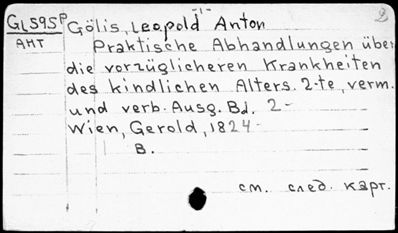 -1-
GL595P Gölis, Leopold Anton
АНТ Praktische Abhandlungen über
die vorzüglicheren Krankheiten
des kindlichen Alters. 2-te, verm.
und verb. Ausg. Bd. 2-
Wien, Gerold, 1824-
B.
см. след. карт.